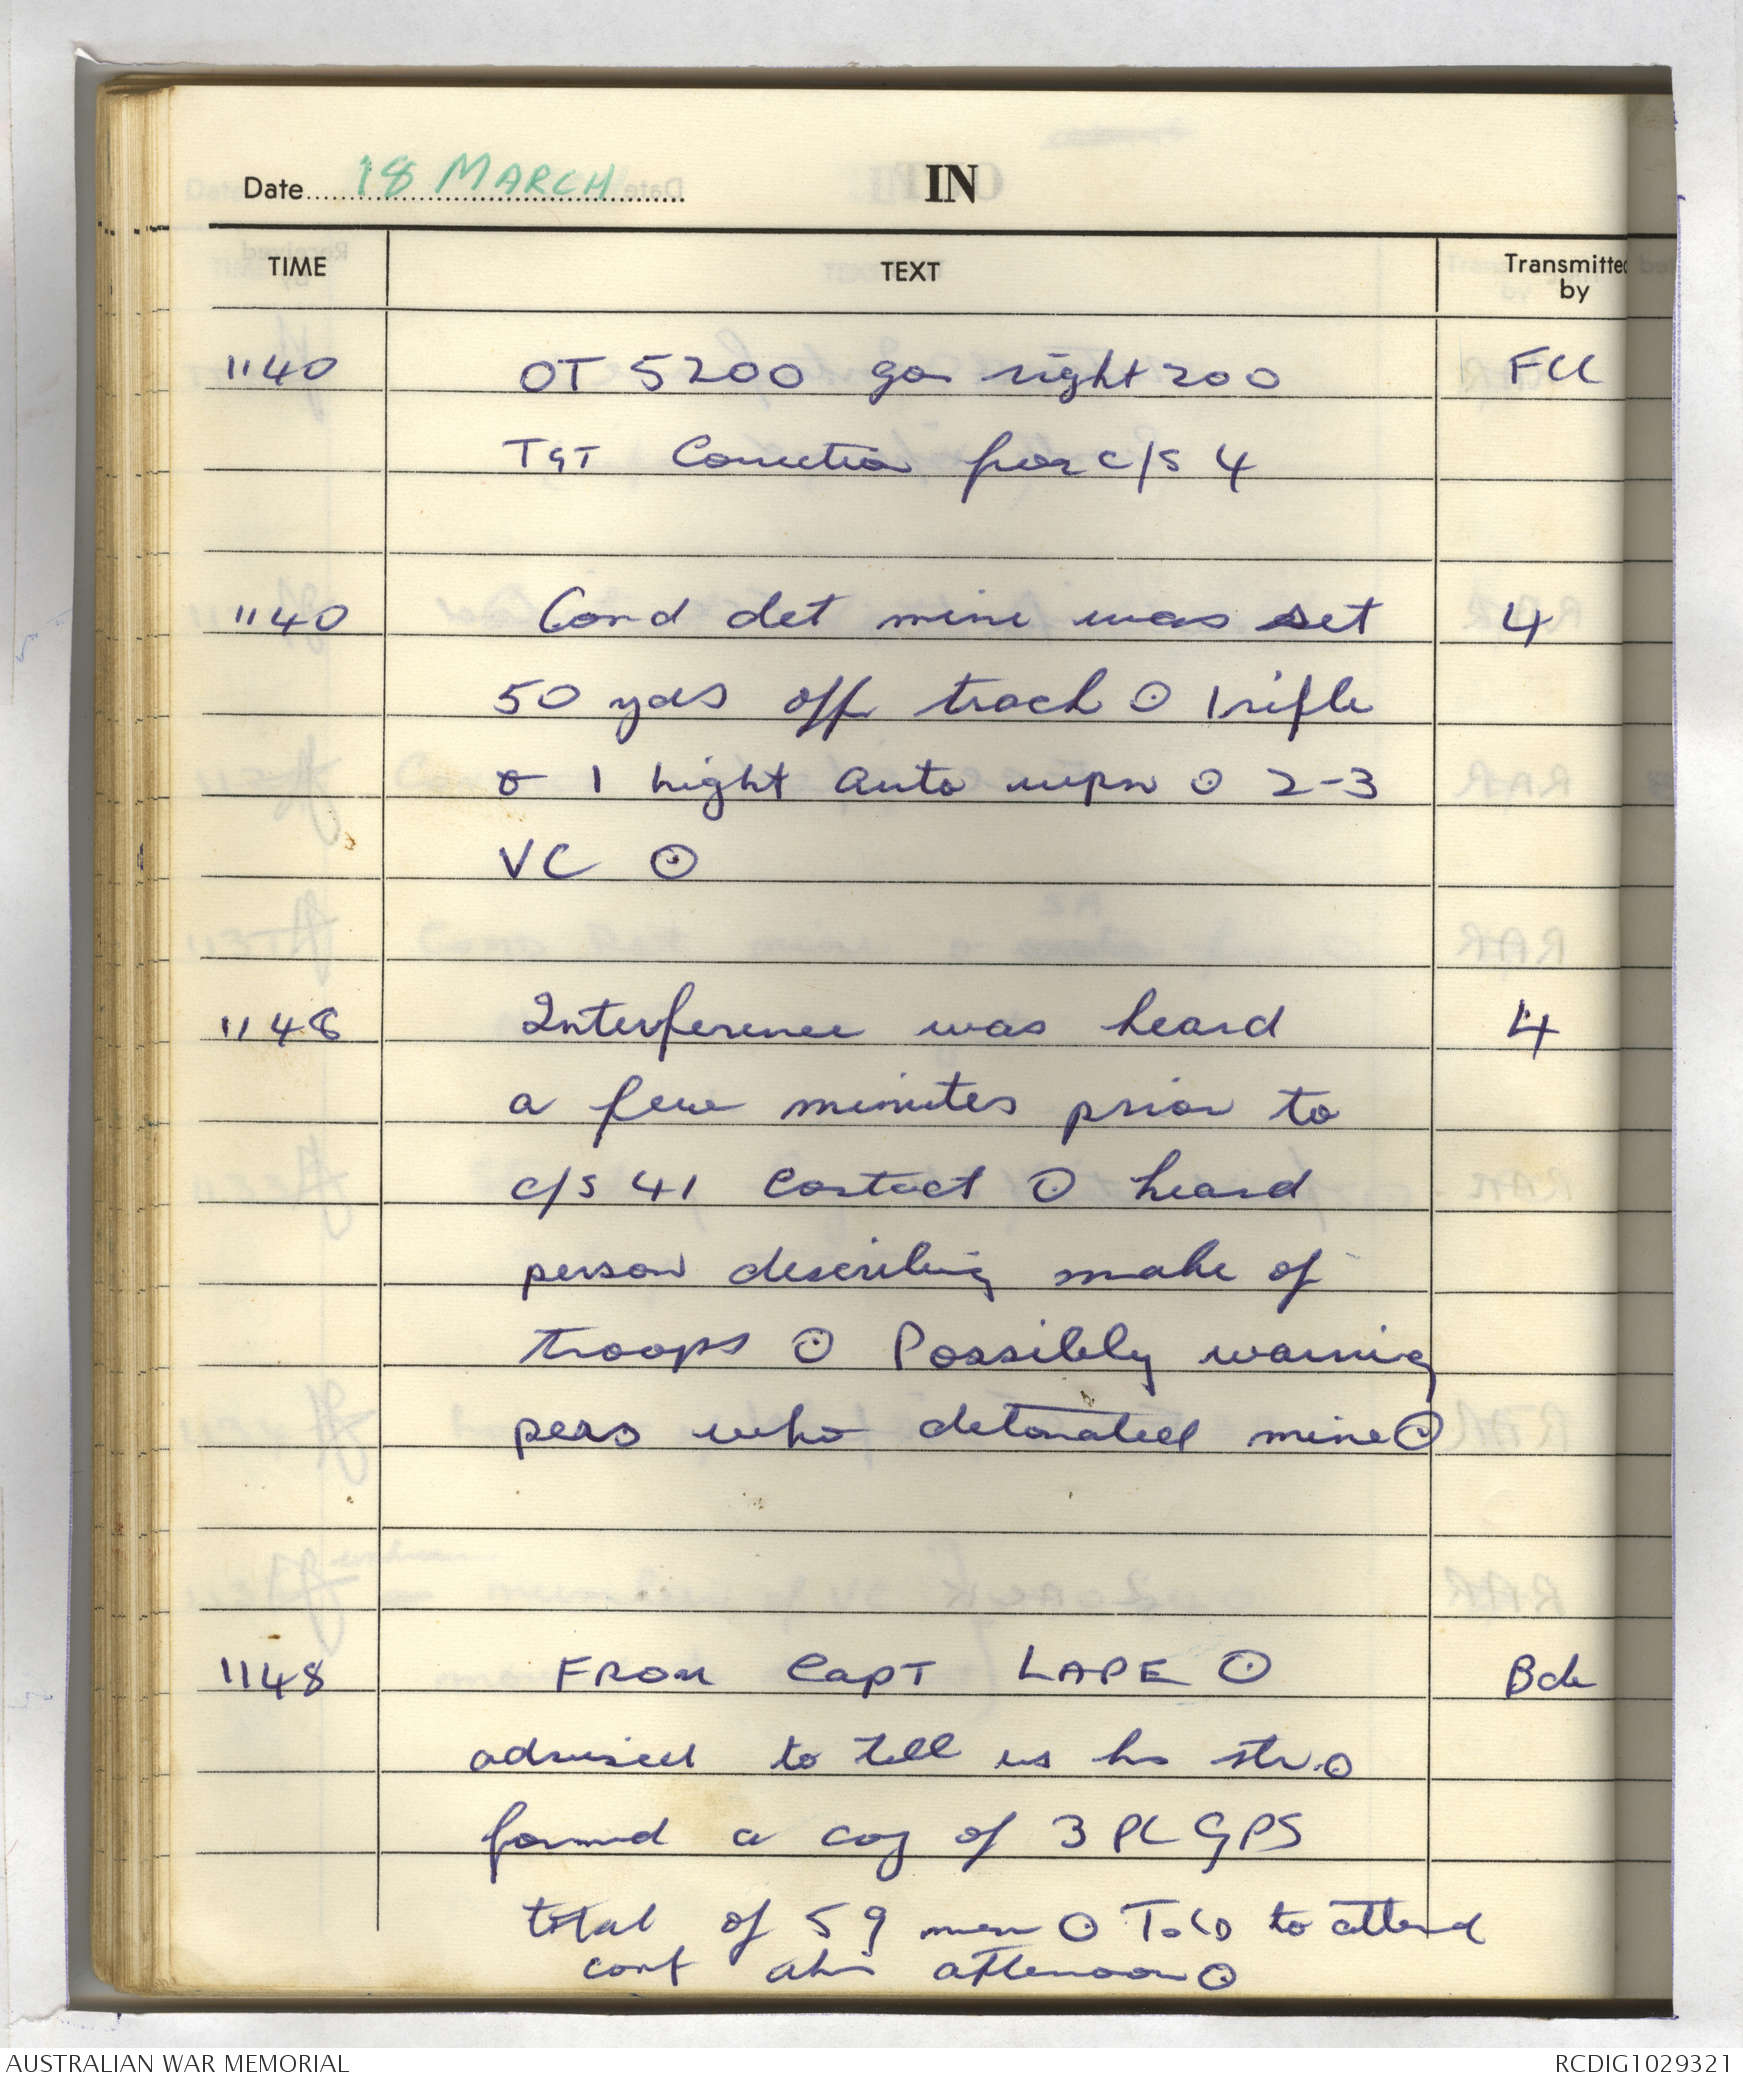 Date 18 MARCH IN
TIME TEXT Transmitted by
1140 OT 5200 go right 200 FCC
TGT Correction for c/s 4
1140 Comd det mine was set 4
50 yds off track ⊙ 1 rifle
& 1 light auto wpn ⊙ 2-3
VC ⊙
1148 Interference was heard 4
a few minutes prior to
c/s 41 contact ⊙ heard
person describing make of
troops ⊙ Possibly warning
pers who detonated mine ⊙
1148 FROM CAPT LAPE ⊙ Bde
advised to tell us his str ⊙
formed a coy of 3 PL GPS
total of 59 men ⊙ Told to attend
conf this afternoon ⊙
AUSTRALIAN WAR MEMORIAL RCDIG1029321